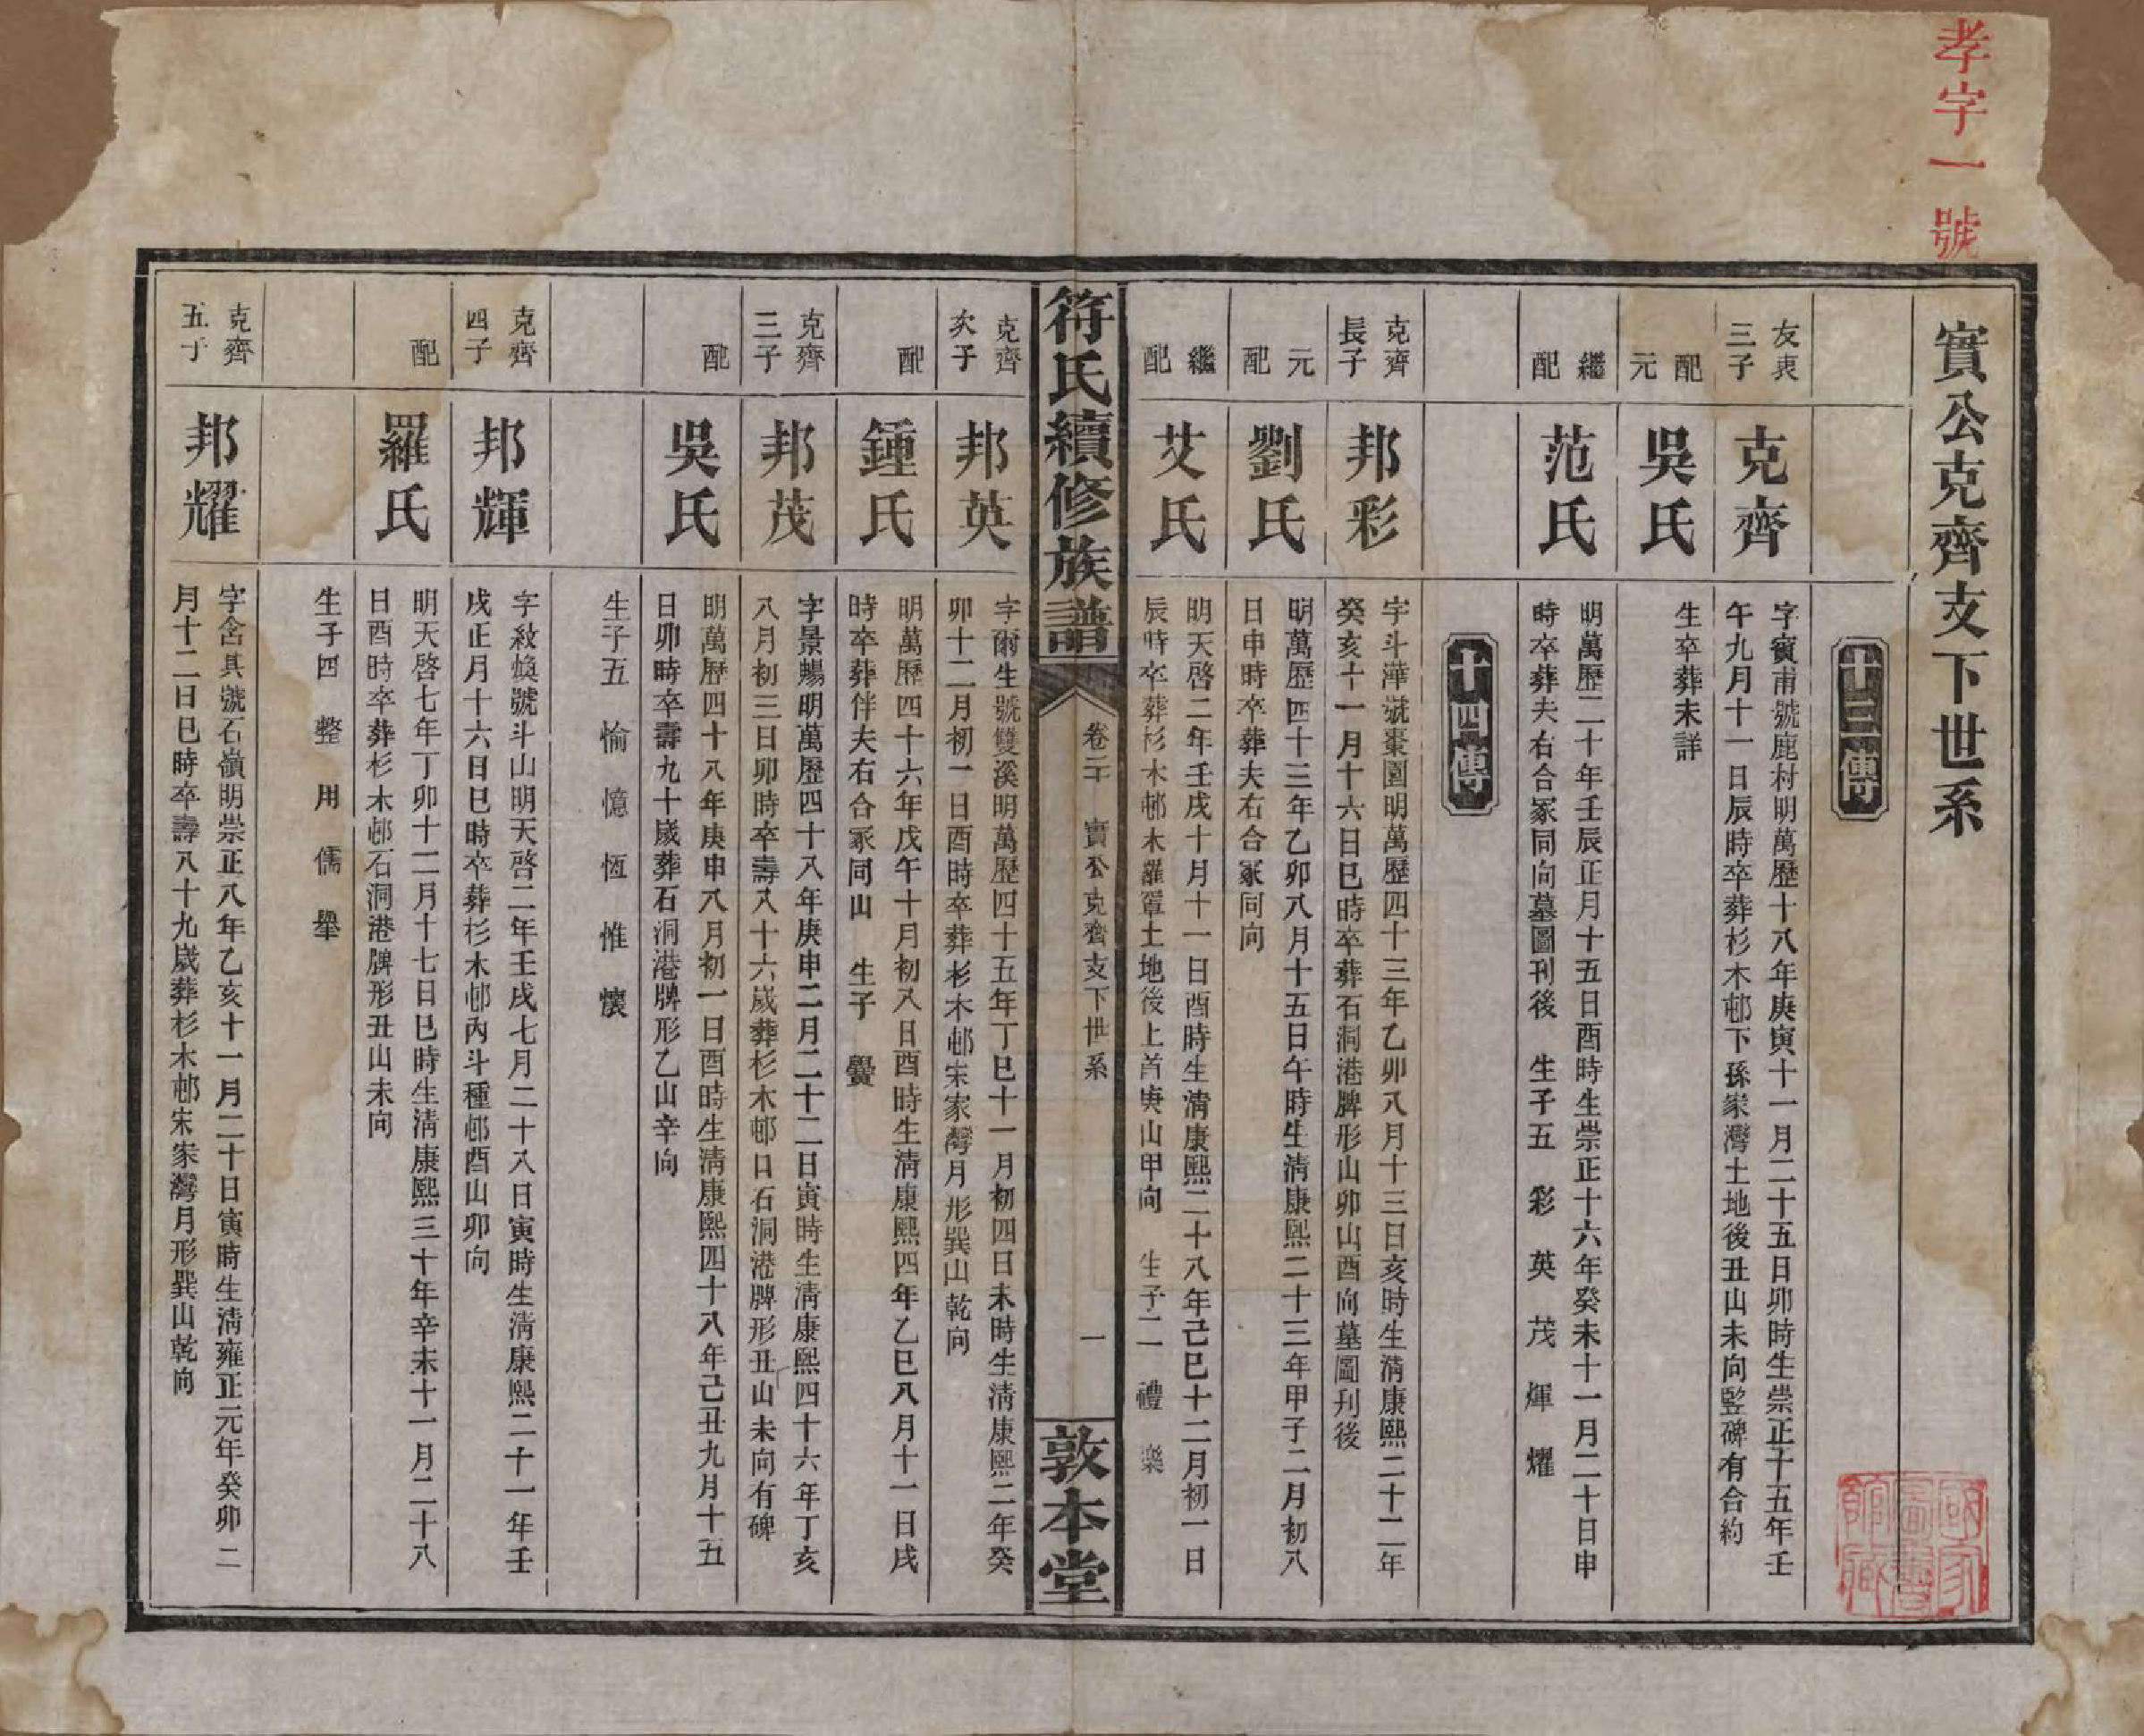 孝字一號
實公克齊支下世系
十三傳
友衷三子
克齊
字賓甫號鹿村明萬歷十八年庚寅十一月二十五日卯時生崇正十五年壬
午九月十一日辰時卒葬杉木邨下孫家灣土地後丑山未向竪碑有合約
元配
吳氏
生卒葬未詳
繼配
范氏
明萬歷二十年壬辰正月十五日酉時生崇正十六年癸未十一月二十日申
時卒葬夫右合冢同向墓圖刊後 生子五 彩 英 茂 輝 燿
十四傳
克齊長子
邦彩
字斗 號棗園明萬歷四十三年乙卯八月十三日亥時生淸康熙二十二年
癸亥十一月十六日巳時卒葬石洞港脾形山卯山酉向墓圖刊後
元配
劉氏
明萬歷四十三年乙卯八月十五日午時生淸康熙二十三年甲子二月初八
日申時卒葬夫右合冢同向
繼配
艾氏
明天啓二年壬戌十月十一日酉時生淸康熙二十八年己巳十二月初一日
辰時卒葬杉木邨木羅罩土地後上首庚山甲向 生子二 禮 樂
符氏續修族譜
卷二 實公克齊支下世系
一
敦本堂
克齊次子
邦英
字爾生號雙溪明萬歷四十五年丁巳十一月初四日未時生淸康熙二年癸
卯十二月初一日酉時卒葬杉木邨宋家灣月形巽山乾向
配
鍾氏
明萬歷四十六年戊午十月初八日酉時生淸康熙四年乙巳八月十一日戌
時卒葬伴夫右合冢同山 生子 釁
克齊三子
邦茂
字景暢明萬歷四十八年庚申二月二十二日寅時生淸康熙四十六年丁亥
八月初三日卯時卒壽八十六歲葬杉木邨口石洞港脾形丑山未向有碑
配
吳氏
明萬歷四十八年庚申八月初一日酉時生淸康熙四十八年己丑九月十五
日卯時卒壽九十歲葬石洞港脾形乙山辛向
生子五 愉 憶 恆 惟 懷
克齊四子
邦輝
字紋煥號斗山明天啓二年壬戌七月二十八日寅時生淸康熙二十一年壬
戌正月十六日巳時卒葬杉木邨內斗種邨酉山卯向
配
羅氏
明天啓七年丁卯十二月十七日巳時生淸康熙三十年辛未十一月二十八
日酉時卒葬杉木邨石洞港脾形丑山未向
生子四 整 用 儒 舉
克齊五子
邦耀
字含其號石嶺明崇正八年乙亥十一月二十日寅時生淸雍正元年癸卯二
月十二日巳時卒壽八十九歲葬杉木邨宋家灣月形巽山乾向
國家圖書館藏